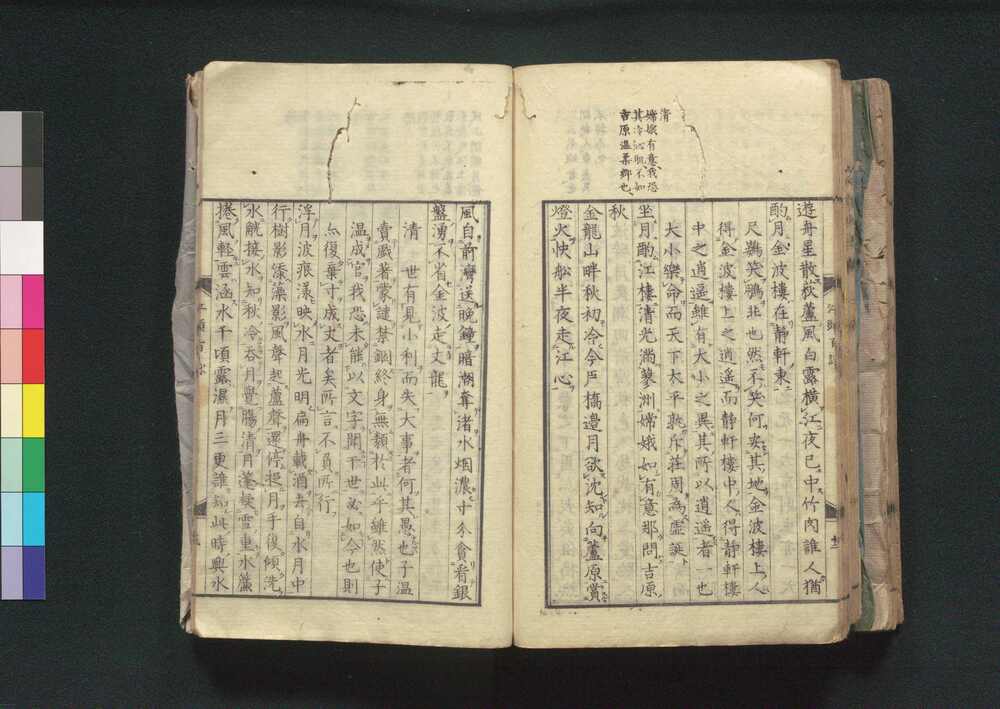 清
嫦娥有意我恐
其冷沁肌不如
吉原温柔郷也
遊舟星散荻蘆風白露横江夜已中竹内誰人猶
酌月金波樓在静軒東
尺鷃笑鵬非也然不笑何安其地金波樓上人
得金波樓上之逍遥而静軒樓中人得静軒樓
中之逍遥雖有大小之異其所以逍遥者一也
大小樂命而天下太平孰斥荘周為虚誕
坐月酌江樓清光満蓼洲嫦娥如有意那問吉原
秋
金龍山畔秋初冷今戸橋邊月欲沈知向蘆原賞
燈火快船半夜走江心
江頭百詠
十二
風自前灣送晩鐘暗潮奪渚水烟濃寸眸貪看銀
盤湧不省金波走丈龍
清 世有見小利而失大事者何其愚也子温
賣戲著蒙譴禁錮終身無類於此乎雖然使子
温成官我恐未能以文字聞于世必如今也則
亦復棄寸成丈者矣所言不負所行
浮月波痕漾映水月光明扁舟載酒去自水月中
行樹影添藻影風聲起蘆聲還停捉月手復傾洗
水觥接水知秋冷吞月覺腸清月蓬疑雪重水簾
捲風輕雲涵水千頃露濕月三更誰知此時興水